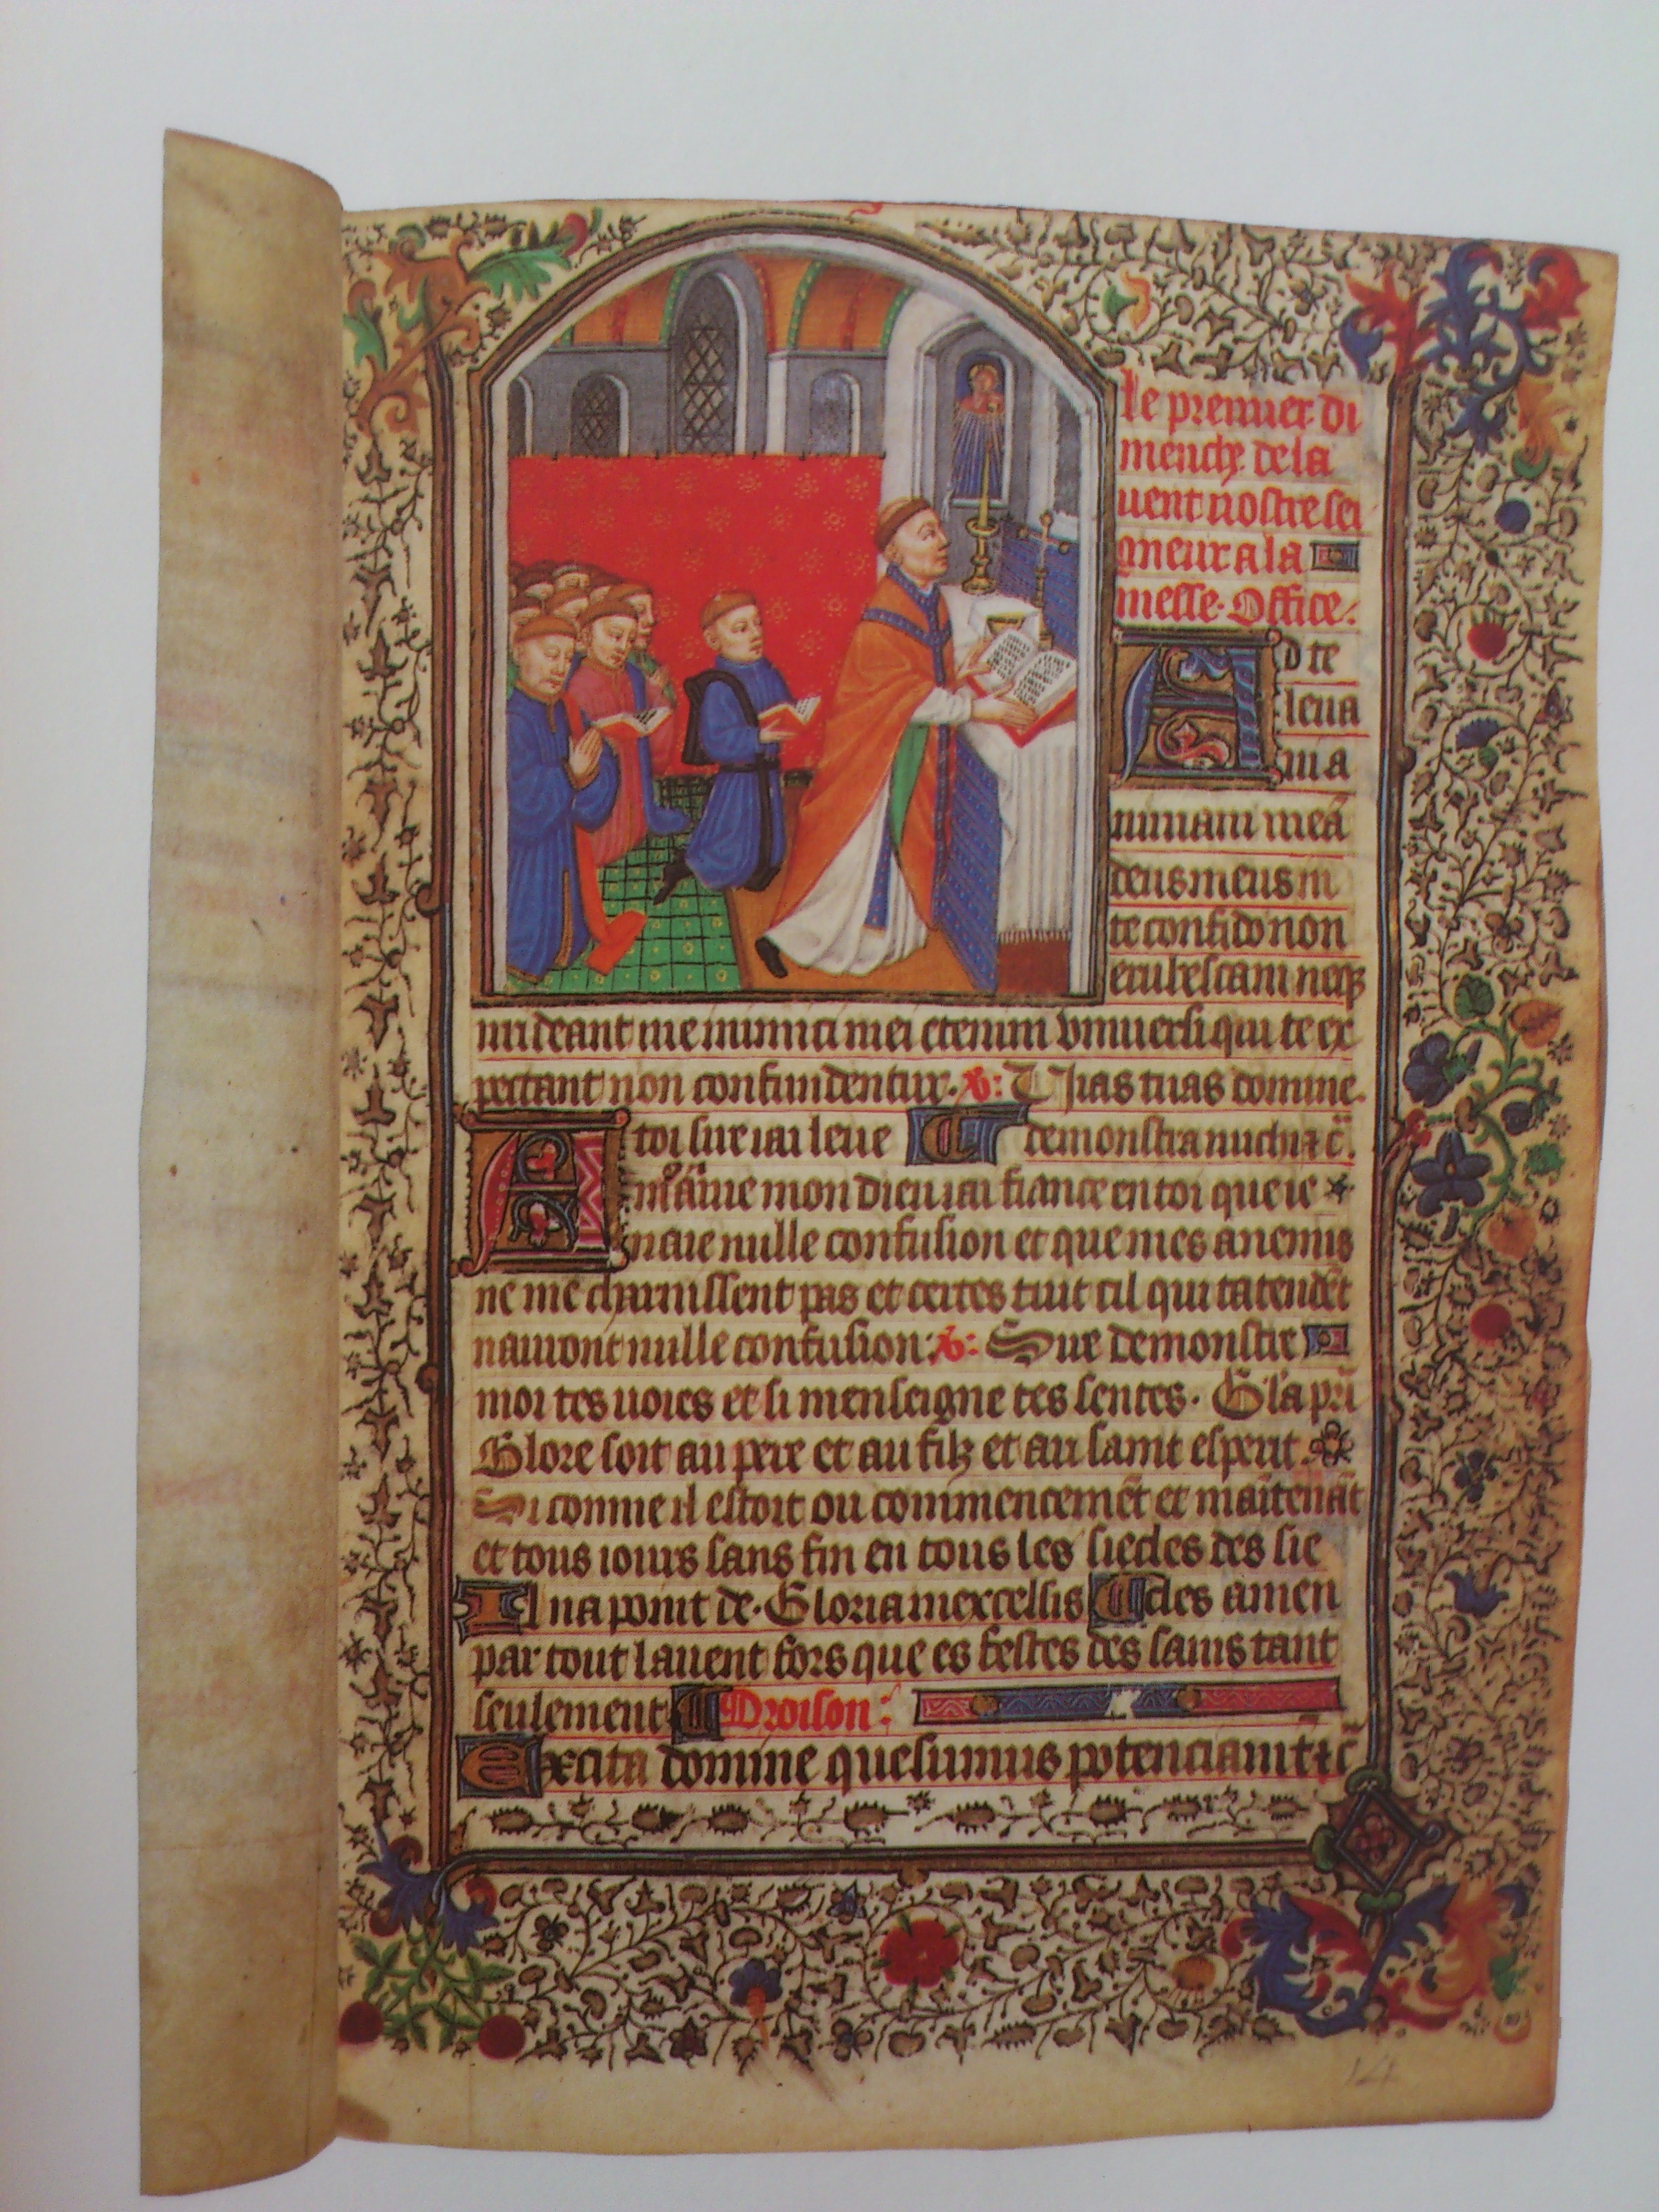 Le premier di
menche de la
uent nostre sei
gneur a la
messe. Office.
Ad te
leua
ui a
nimam meā
deus meus in
te confido non
erubescam neqʒ
irrideant me inimici mei etenim vniuersi qui te ex
pectant non confundentur. V: Uias tuas domine
A toi sire iai leue demonstra michi ⁊ c̄.
m'ame mon dieu iai fiance en toi que ie
naie nulle confusion et que mes anemis
ne me charnissent pas et certes tuit cil qui tatendēt
nauront nulle confusion: V: Sire demonstre
moi tes uoies et si menseigne tes sentes. Gl'a pr̄i
Glore soit au pere et au filz et au saint esperit.
Si comme il estoit ou commencemēt et maītenāt
et tous iours sans fin en tous les siecles des sie
Il na point de. Gloria in excelsis cles amen
par tout lauent fors que es festes des sains tant
seulement Oroison:
Excita domine quesumus potenciam t. ⁊ c̄
14